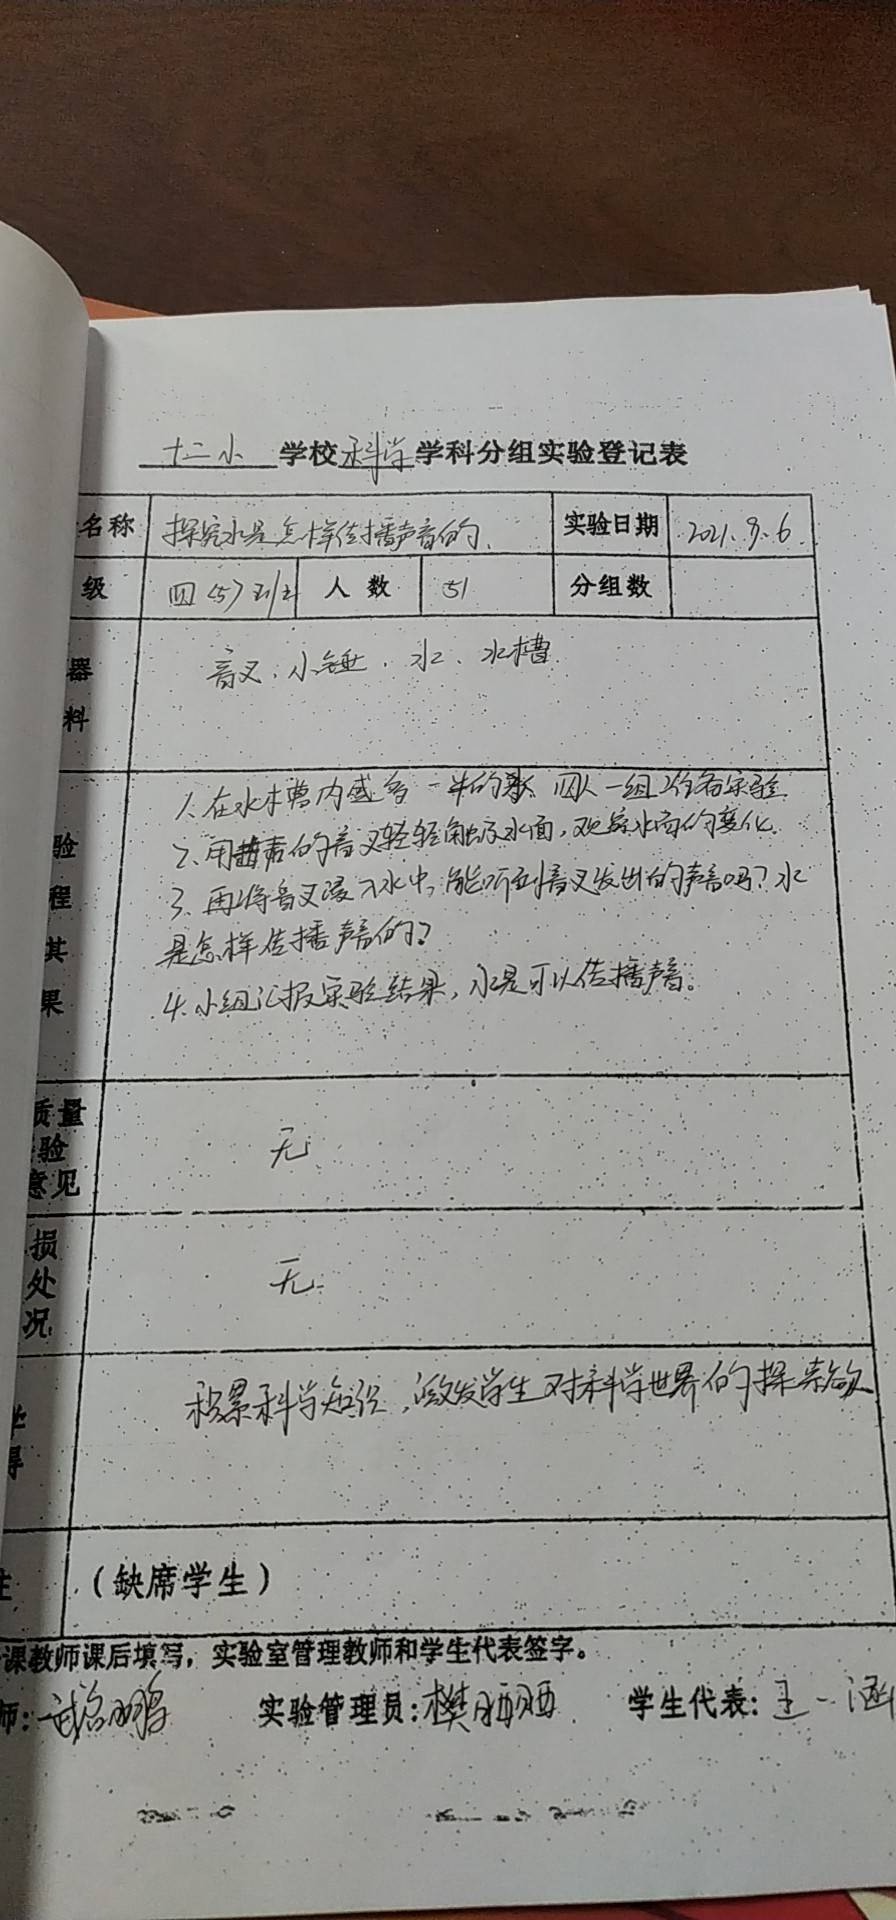 十二小 学校科学学科分组实验登记表
名称 探究水是怎样传播声音的. 实验日期 2021.9.6
级 四〈5〉班 人数 51 分组数
器 音叉、小锤、水、水槽
料
1.在水槽内盛多一半的水 四人一组准备实验
验 2.用击声的音叉轻轻触及水面,观察水面的变化.
程 3.再将音叉浸入水中,能听到音叉发出的声音吗?水
其 是怎样传播声音的?
果 4.小组汇报实验结果,水是可以传播声音。
质量
验 无
意见
损
处 无.
况
学 积累科学知识,激发学生对科学世界的探索欲
得
生 (缺席学生)
课教师课后填写,实验室管理教师和学生代表签字。
师: 实验管理员:樊丽丽 学生代表:王一涵